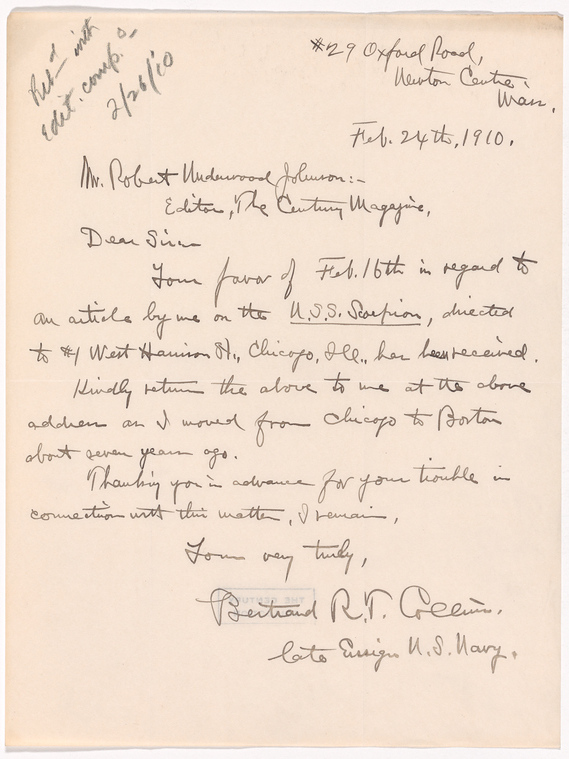 Ret'd with
edit. comp.s
2/26/10
#29 Oxford Road,
Newton Centre,
Mass.
Feb. 24th, 1910.
Mr. Robert Underwood Johnson:-
Editor, The Century Magazine,
Dear Sir:-
Your favor of Feb. 16th in regard to
an article by me on the U.S.S. Scorpion, directed
to #1 West Harrison St., Chicago, Ill., has been received.
Kindly return the above to me at the above
address as I moved from Chicago to Boston
about seven years ago.
Thanking you in advance for your trouble in
connection with this matter, I remain,
Yours very truly,
THE CENTURY
Bertrand R.T. Collins.
late Ensign U.S. Navy.